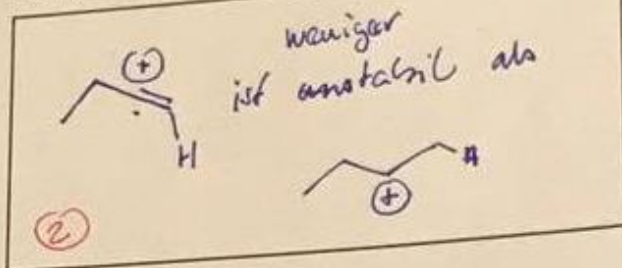 weniger
ist unstabil als
⊕
H
H
⊕
②